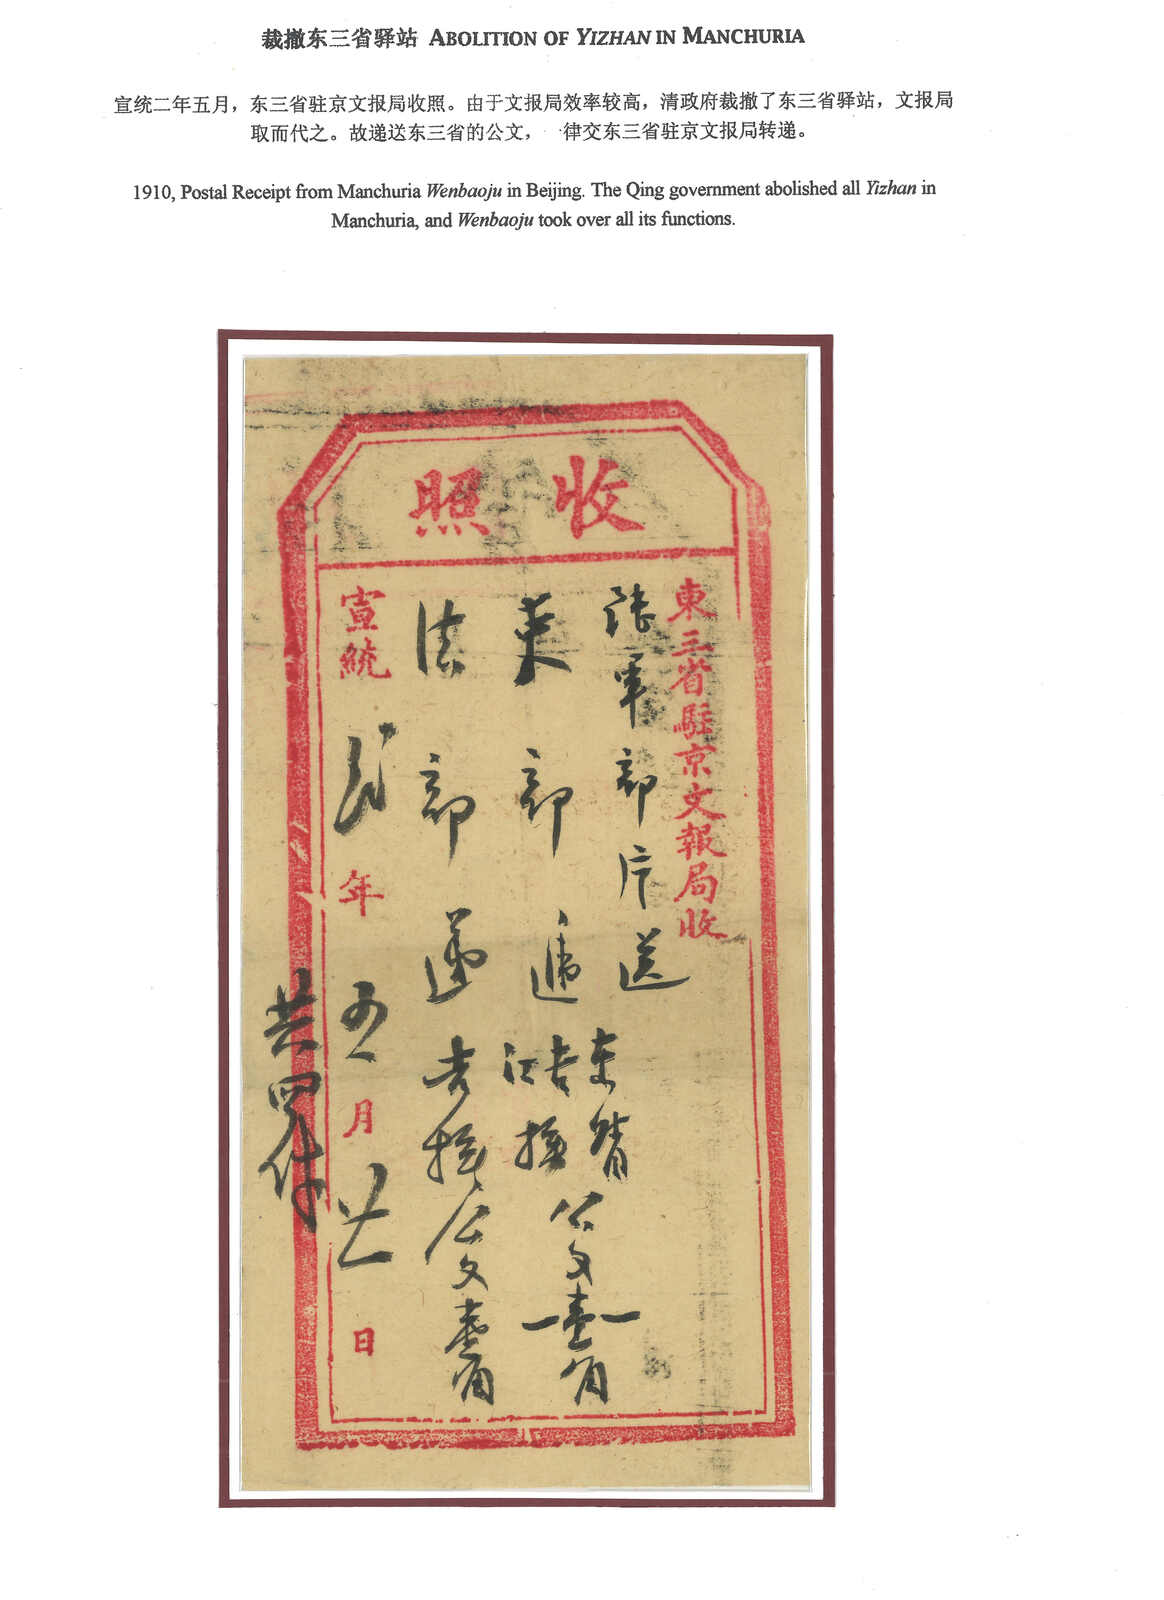 裁撤东三省驿站 ABOLITION OF YIZHAN IN MANCHURIA
宣统二年五月，东三省驻京文报局收照。由于文报局效率较高，清政府裁撤了东三省驿站，文报局
取而代之。故递送东三省的公文， 律交东三省驻京文报局转递。
1910, Postal Receipt from Manchuria Wenbaoju in Beijing. The Qing government abolished all Yizhan in
Manchuria, and Wenbaoju took over all its functions.
收照
東三省駐京文報局收
陸軍部片送
部遞
吉江東
撫督
公文壹角
法部遞吉撫公文壹角
宣統貳年五月廿一日
共四件